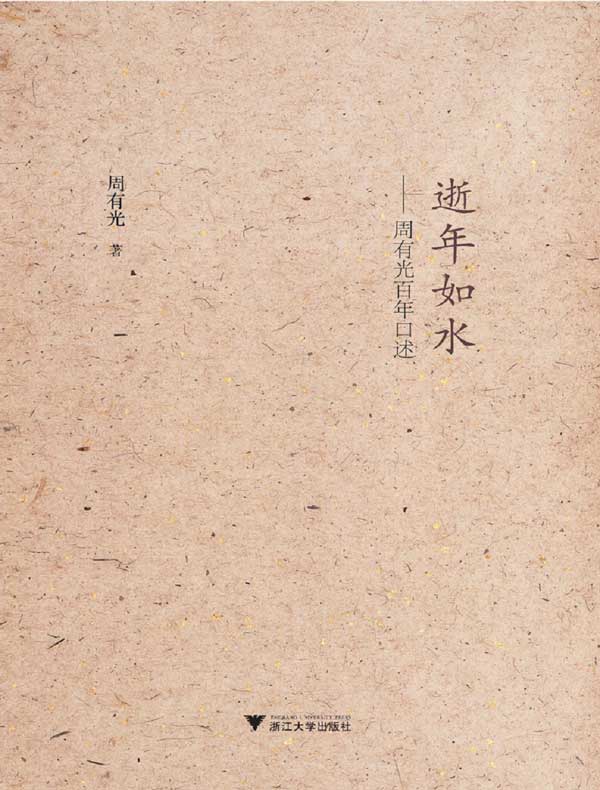 逝年如水
——周有光百年口述
周有光 著
ZHEJIANG UNIVERSITY PRESS
浙江大学出版社